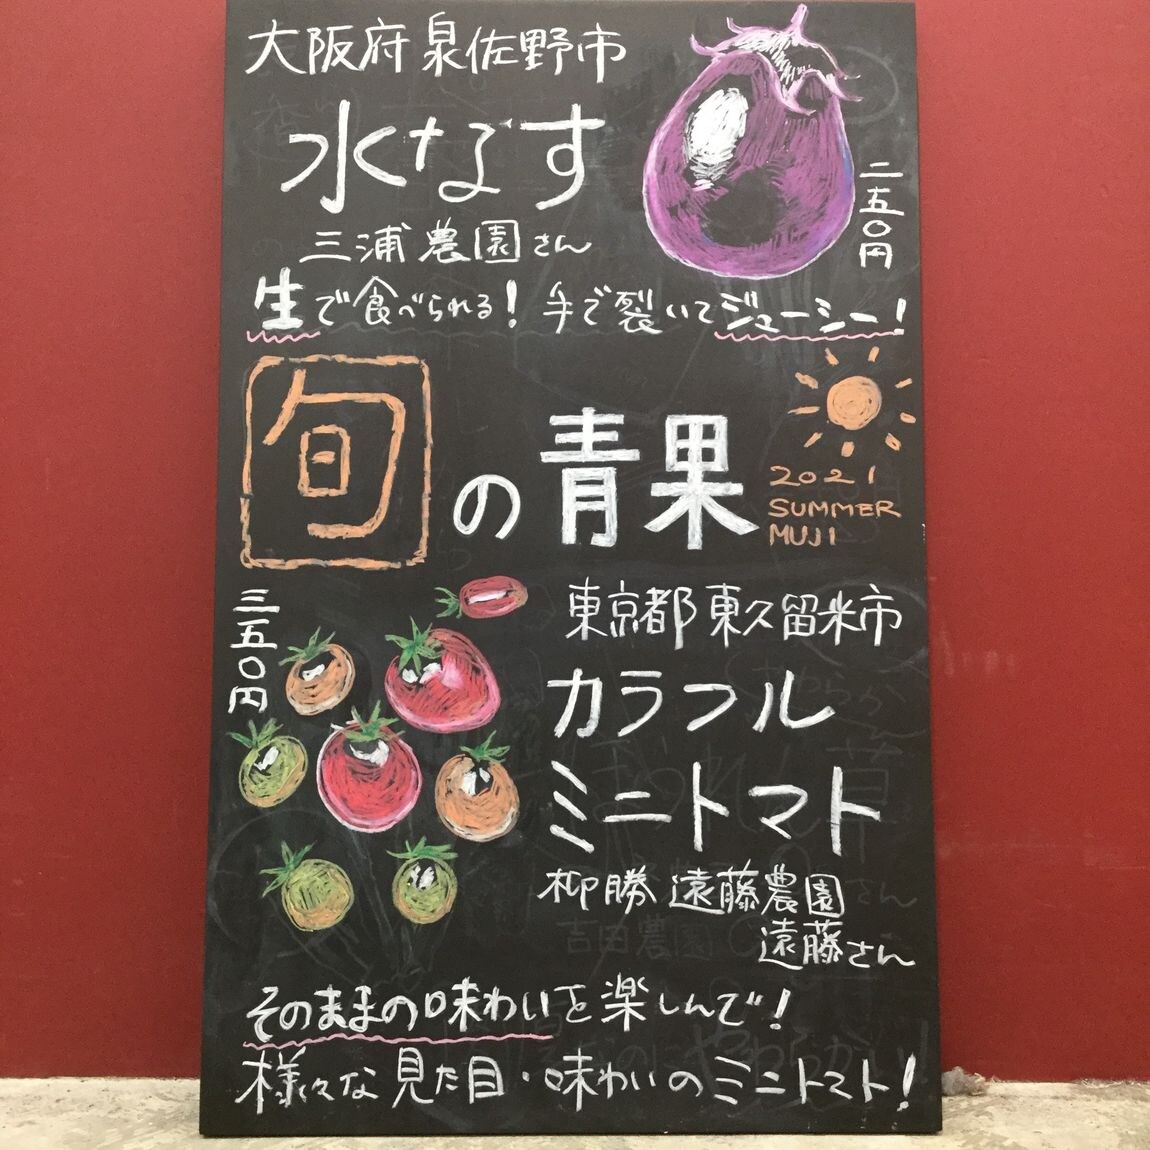 大阪府泉佐野市
水なす
三浦農園さん
二五〇円
生で食べられる！手で裂いてジューシー！
旬の青果
2021
SUMMER
MUJI
三五〇円
東京都東久留米市
カラフル
ミニトマト
柳勝 遠藤農園
遠藤さん
そのままの味わいを楽しんで！
様々な見た目・味わいのミニトマト！